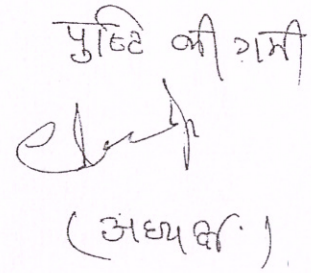 पुष्टि की गयी
(अध्यक्ष)